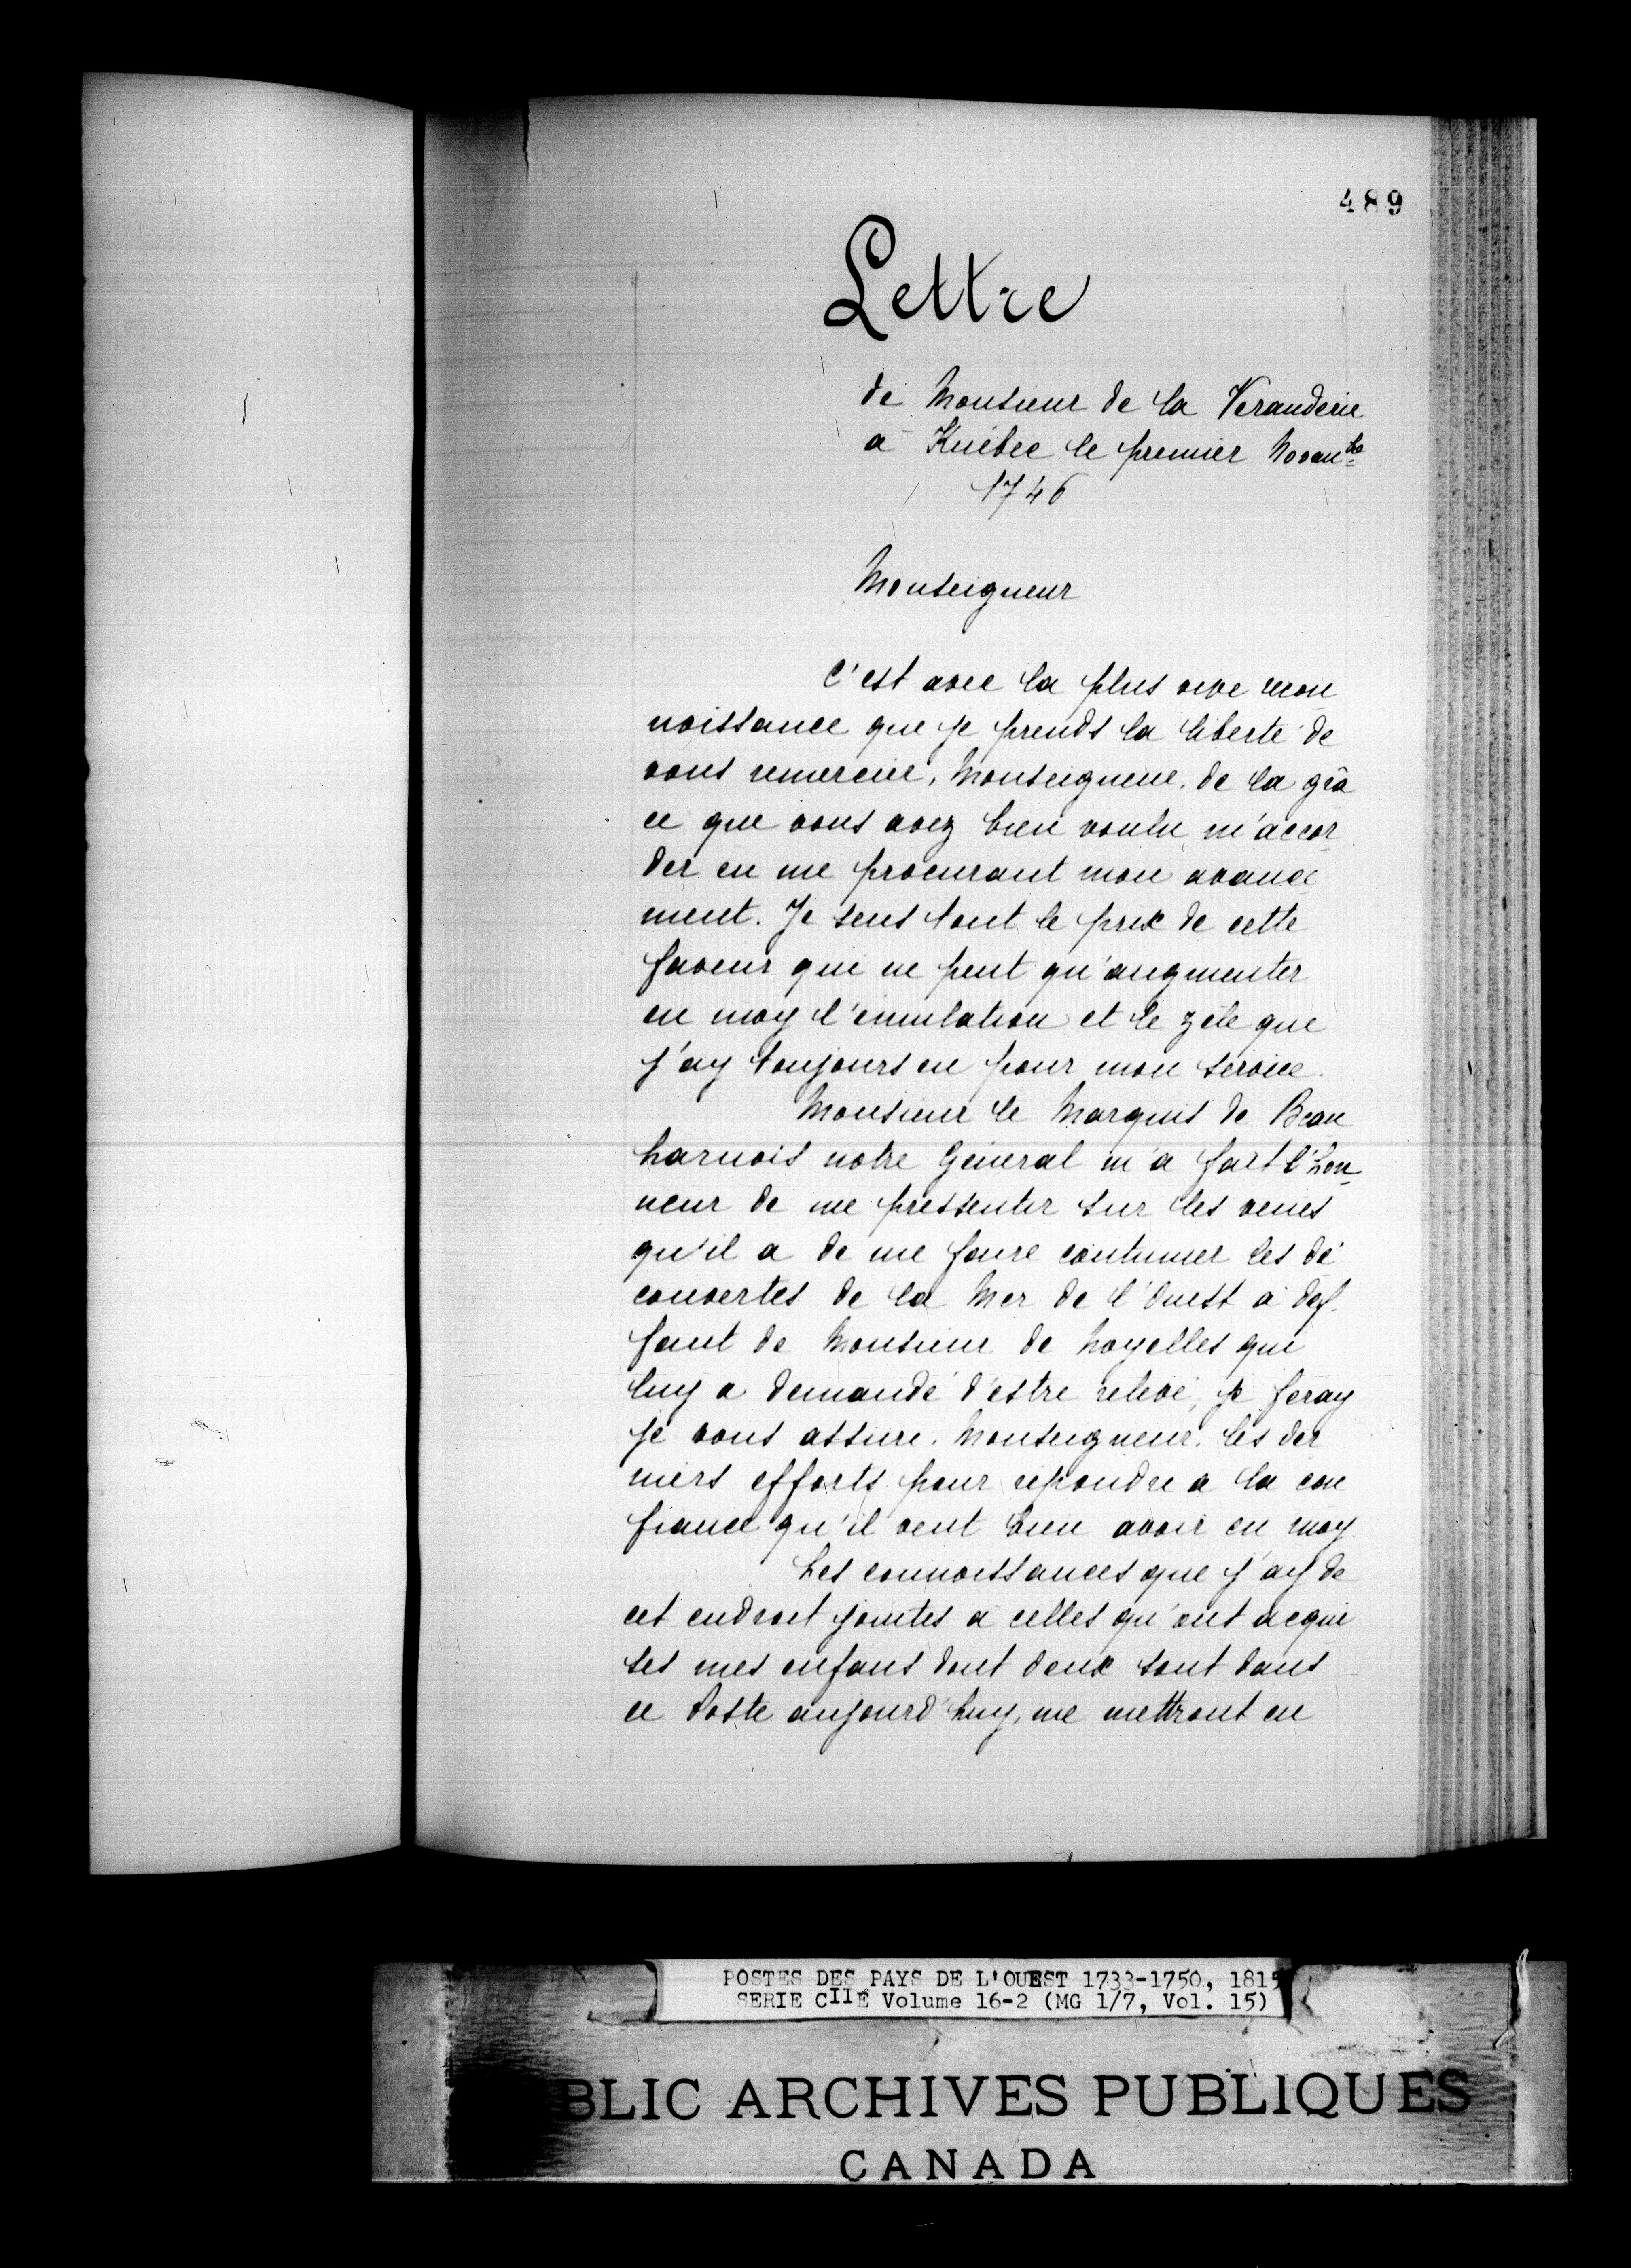 489
Lettre
de Monsieur de la Veranderie
a Kuébec le premier Novanbe
1746
Monseigneur
C'est avec la plus vive recon
noissance que je prends la liberté de
vous remercier, Monseigneur, de la grâ
ce que vous avez bien voulu m'accor
der en me procurant mon avance
ment. Je sens tout le prix de cette
faveur qui ne peut qu'augmenter
en moy l'émulation et le zéle que
j'ay toujours eu pour mon service.
Monsieur le Marquis de Beau
harnois notre Général m'a fait l'hon
neur de me pressentir sur les veues
qu'il a de me faire continuer les dé
couvertes de la Mer de l'Ouest à def
faut de Monsieur de Noyelles qui
luy a demandé d'estre relevé, je feray
je vous assure, Monseigneur, les der
niers efforts pour répondre a la con
fiance qu'il veut bien avoir en moy
Les connoissances que j'ay de
cet endroit jointes a celles qu'ont acqui
ses mes enfans dont deux sont dans
ce Poste aujourd'huy, me mettront en
POSTES DES PAYS DE L'OUEST 1733-1750, 1815
SERIE CIIE Volume 16-2 (MG 1/7, Vol. 15)
BLIC ARCHIVES PUBLIQUES
CANADA